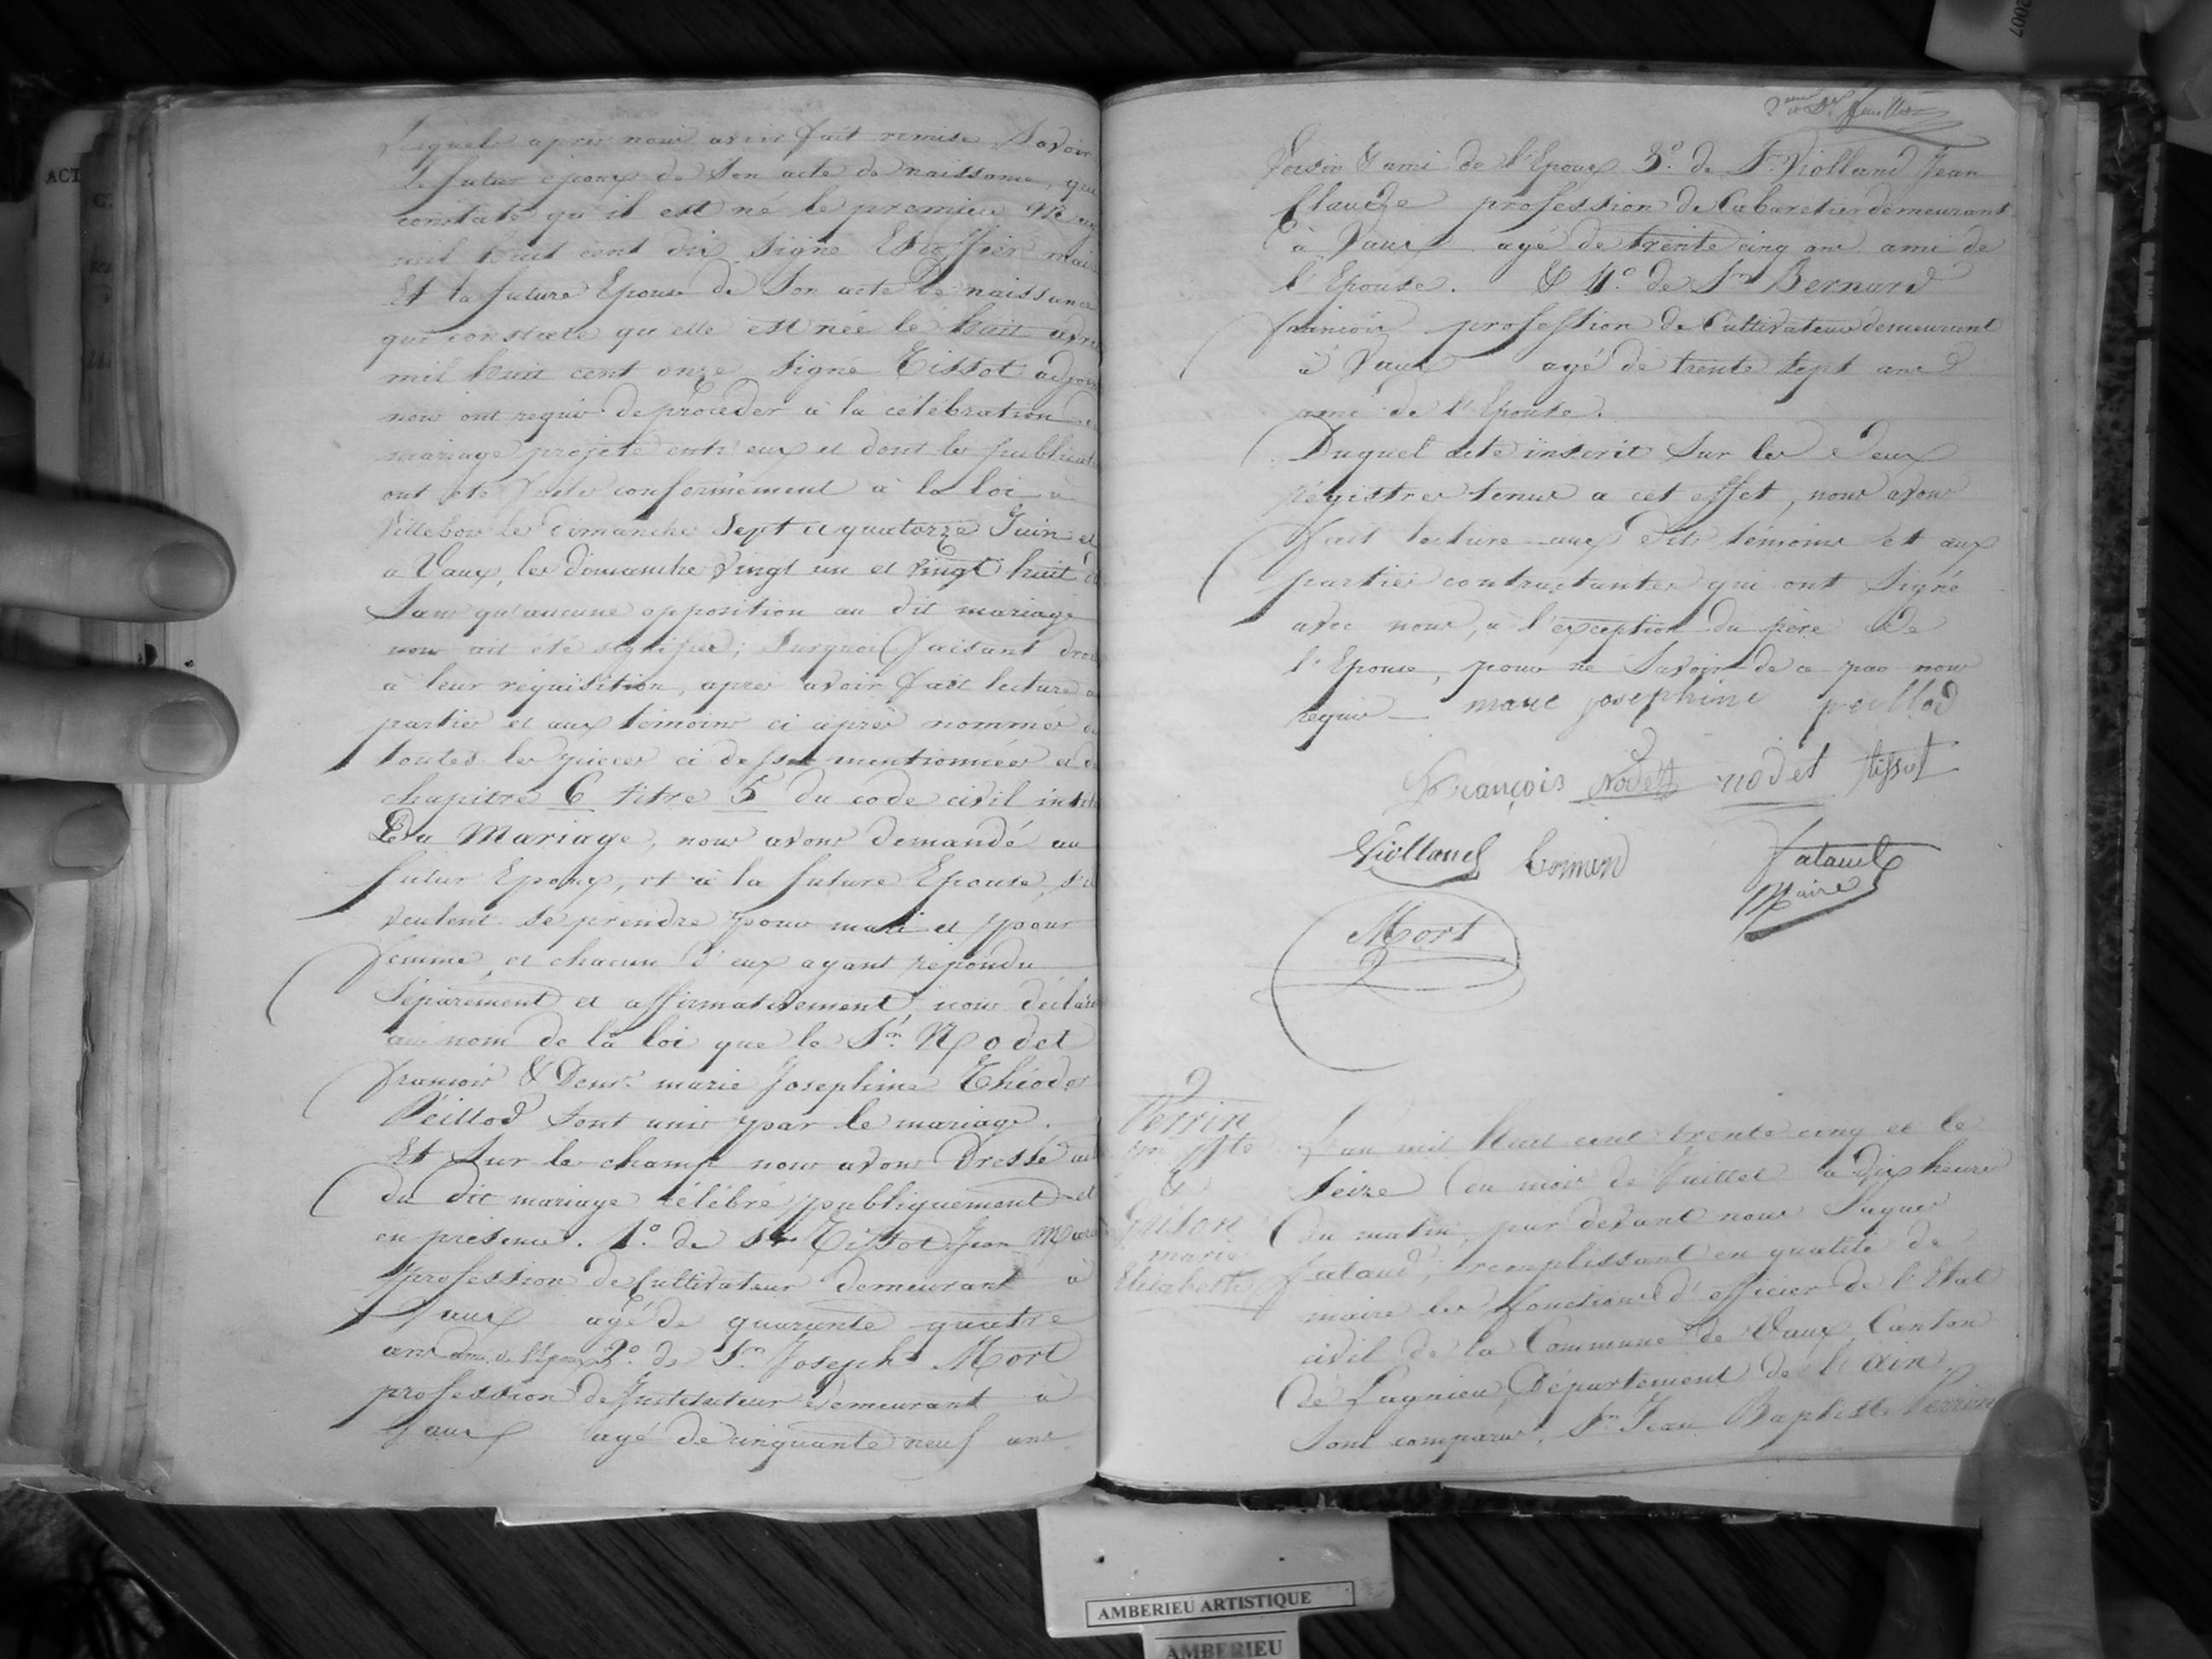 Lesquels apres nous avoir fait remise Savoir
Le futur epoux de Son acte de naissance, qui
constate qu'il est né le premier
mil huit cent dix Signé Estoffier maire
Et la future Epouse de Son acte de naissance
qui constate qu'elle est née le huit avril
mil huit cent onze Signé Tissot adjoin
nous ont requis de proceder à la célébration du
mariage projeté entr'eux et dont les publicat
ont été faites conformément à la loi à
Villebois les Dimanches Sept et quatorze Juin et
a Vaux, les dimanches vingt un et vingt huit
Sans qu'aucune opposition au dit mariage
nous ait été signifiée; Surquoi faisant droit
à leur réquisition, apres avoir fait lecture
parties et aux témoins ci après nommés de
toutes les pieces ci dessus mentionnées et du
chapitre 6 titre 5 du code civil intit
Du Mariage, nous avons demandé au
futur Epoux, et à la future Epouse, s'il
veulent se prendre pour mari et pour
femme, et chacun d'eux ayant répondu
Séparément et affirmativement, nous déclaro
au nom de la loi que le Sr. Nodet
françois & Demlle marie Josephine Théodo
Peillod Sont unis par le mariage.
Et Sur le champ nous avons Dressé act
du dit mariage célébré publiquement et
en présence. 1º. de Sr Tissot Jean Marie
profession de Cultivateur demeurant à
Vaux agé de quarante quatre
ans ami de l'Epoux 2º. de Sr. Joseph Mort
profession de Instituteur demeurant à
Vaux agé de cinquante neuf ans
2eme Feuillet
Voisin & ami de l'Epoux 3º. de Sr. Violland Jean
Claude profession de Cabaretier demeurant
à Vaux agé de trente cinq ans ami de
l'Epouse. & 4º. de Sr Bernard
françois profession de Cultivateur demeurant
à Vaux agé de trente Sept ans
ami de l'Epouse.
Duquel acte inscrit Sur les Deux
régistres tenus a cet effet, nous avons
fait lecture aux dits témoins et aux
parties contractantes qui ont Signé
avec nous, à l'exception du père de
l'Epouse, pour ne Savoir de ce par nous
requis marie josephine peillod
François Nodet nodet tissot
Violland
Fataud
Maire
Mort
9
Perrin
Jn Bte
&
Guiton
marie
Elisabeth
L'an mil huit cent trente cinq et le
Seize du mois de Juillet à dix heures
du matin, par devant nous
fataud, remplissant en qualité de
maire les fonctions d'officier de l'Etat
civil de la Commune de Vaux, Canton
de Lagnieu, Département de l'Ain,
Sont comparus, Sr. Jean Baptiste Perrin
ACT
2007
AMBERIEU ARTISTIQUE
AMBERIEU